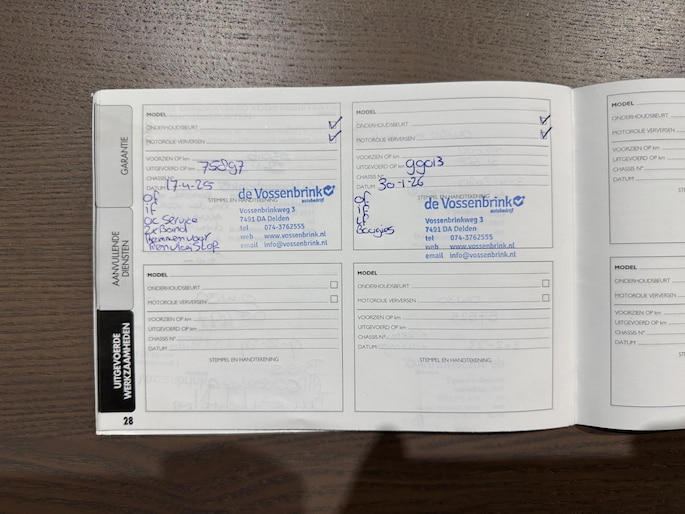 GARANTIE
AANVULLENDE
DIENSTEN
UITGEVOERDE
WERKZAAMHEDEN
28
MODEL
ONDERHOUDSBEURT
MOTOROLIE VERVERSEN
VOORZIEN OP km
UITGEVOERD OP km 75897
CHASSIS N°
DATUM 17-4-25
STEMPEL EN HANDTEKENING
of
if
ac service
2x Band
de Vossenbrink
autobedrijf
Vossenbrinkweg 3
7491 DA Delden
tel 074-3762555
web www.vossenbrink.nl
email info@vossenbrink.nl
MODEL
ONDERHOUDSBEURT
MOTOROLIE VERVERSEN
VOORZIEN OP km
UITGEVOERD OP km 99013
CHASSIS N°
DATUM 30-1-26
STEMPEL EN HANDTEKENING
of
if
Bougies
de Vossenbrink
autobedrijf
Vossenbrinkweg 3
7491 DA Delden
tel 074-3762555
web www.vossenbrink.nl
email info@vossenbrink.nl
MODEL
ONDERHOUDSBEURT
MOTOROLIE VERVERSEN
VOORZIEN OP km
UITGEVOERD OP km
CHASSIS N°
DATUM
STEMPEL EN HANDTEKENING
MODEL
ONDERHOUDSBEURT
MOTOROLIE VERVERSEN
VOORZIEN OP km
UITGEVOERD OP km
CHASSIS N°
DATUM
STEMPEL EN HANDTEKENING
MODEL
ONDERHOUDSBEURT
MOTOROLIE VERVERSEN
VOORZIEN OP km
UITGEVOERD OP km
CHASSIS N°
DATUM
MODEL
ONDERHOUDSBEURT
MOTOROLIE VERVERSEN
VOORZIEN OP km
UITGEVOERD OP km
CHASSIS N°
DATUM